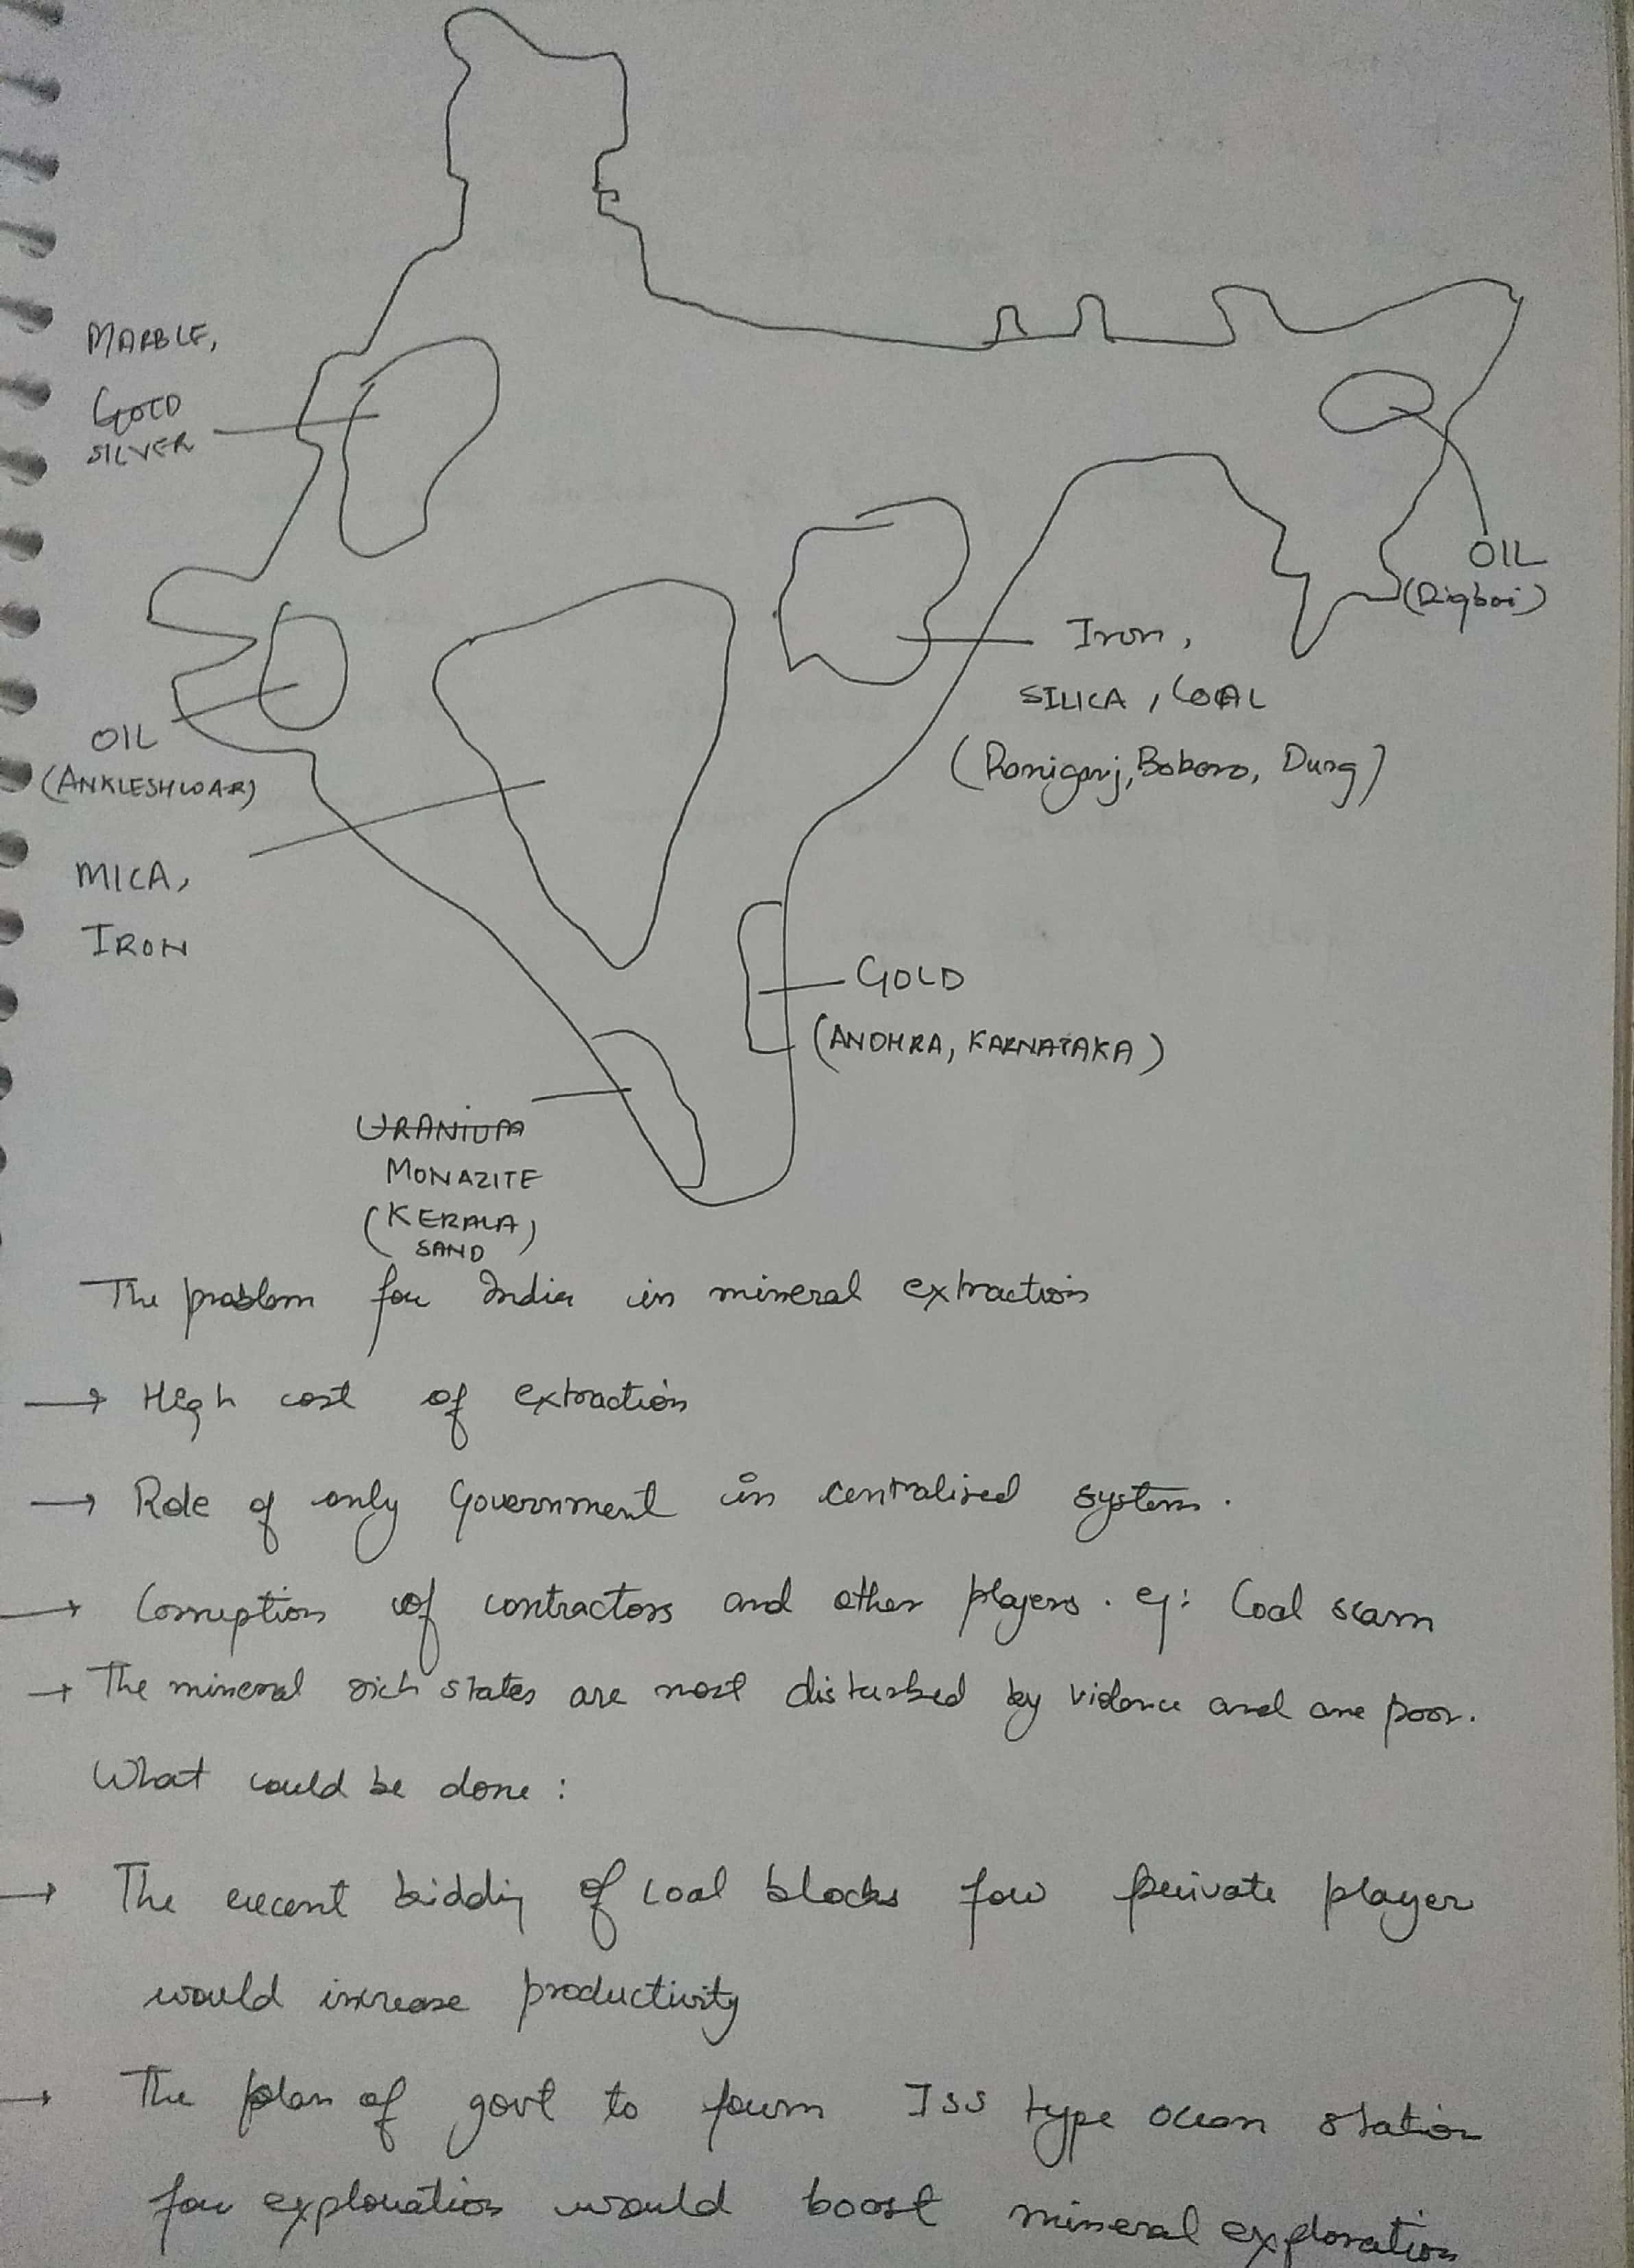 MARBLE,
GOLD
SILVER
OIL
(Digboi)
Iron,
SILICA, COAL
(Raniganj, Bokoro, Durg)
OIL
(ANKLESHWAR)
MICA,
IRON
GOLD
(ANDHRA, KARNATAKA)
URANIUM
MONAZITE
(KERALA)
SAND
The problem for India in mineral extraction
→ High cost of extraction
→ Role of only Government in centralised system.
→ Corruption of contractors and other players. eg: Coal scam
→ The mineral rich states are most disturbed by violence and are poor.
What could be done:
→ The recent bidding of coal blocks for private player
would increase productivity
→ The plan of govt to form ISS type ocean station
for exploration would boost mineral exploration